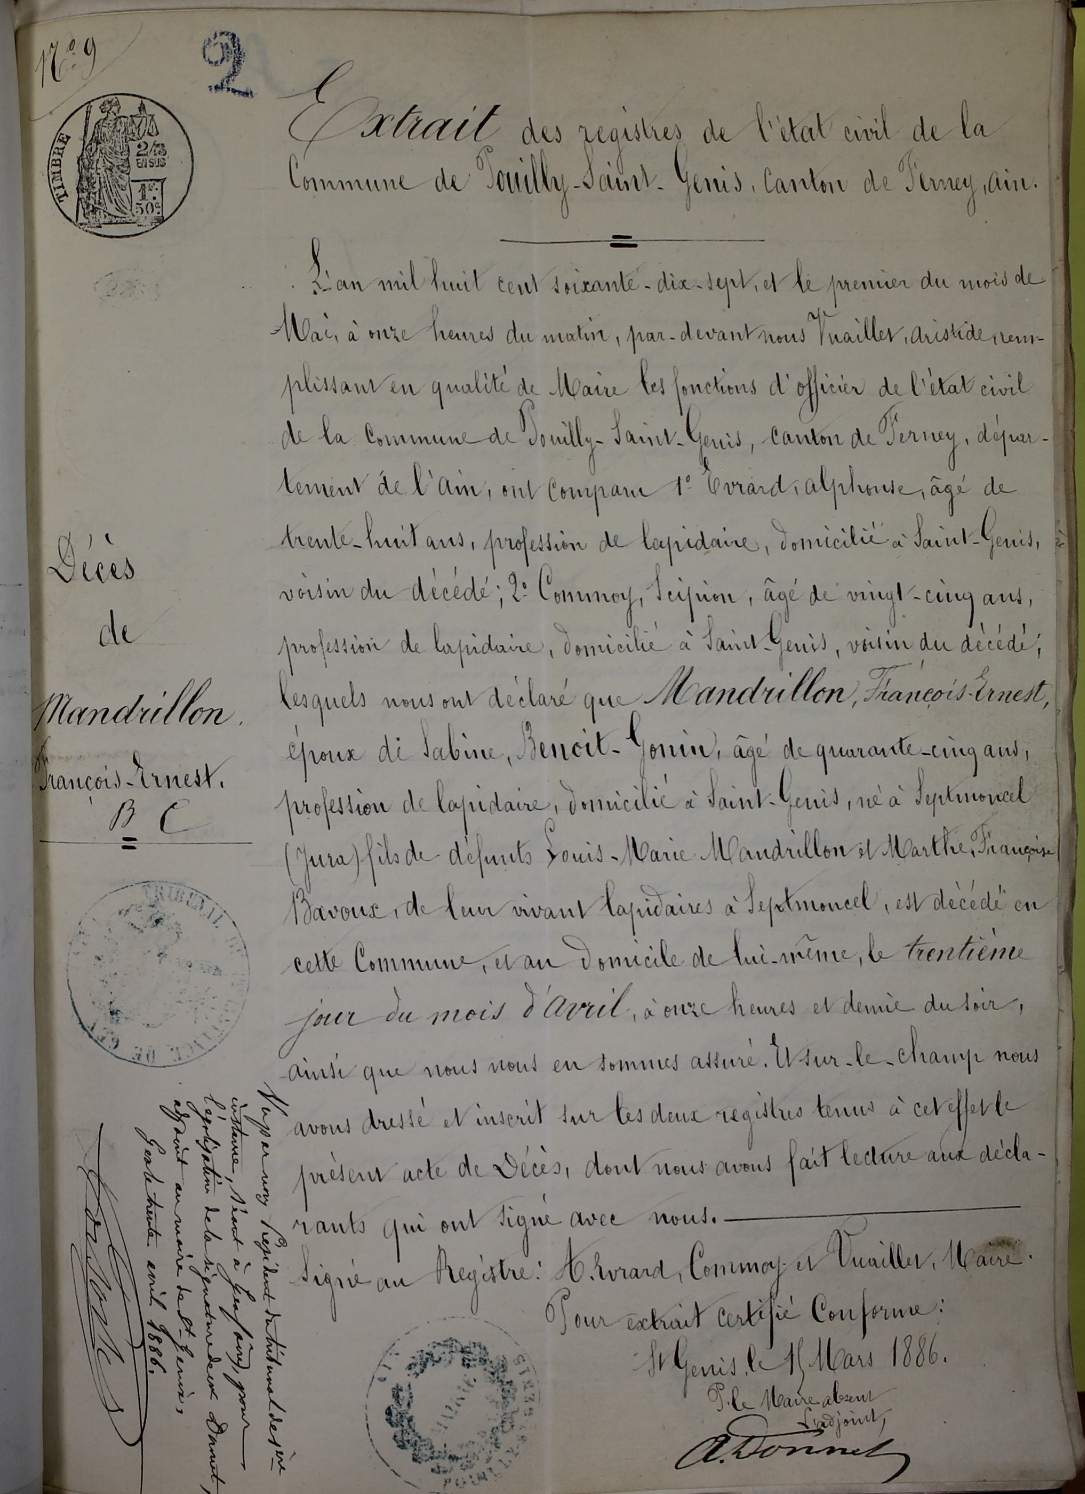 N° 9
2
TIMBRE
2/10
EN SUS
1F.
50c
Extrait des registres de l'état civil de la
Commune de Pouilly-Saint-Genis, canton de Ferney, Ain.
L'an mil huit cent soixante-dix-sept, et le premier du mois de
Mai, à onze heures du matin, par-devant nous Vuaillet, Aristide, rem-
plissant en qualité de Maire les fonctions d'officier de l'état civil
de la Commune de Pouilly-Saint-Genis, canton de Ferney, dépar-
tement de l'Ain, ont comparu 1° Evrard, alphonse, âgé de
trente-huit ans, profession de lapidaire, domicilié à Saint-Genis,
voisin du décédé; 2° Commoy, Scipion, âgé de vingt-cinq ans,
profession de lapidaire, domicilié à Saint-Genis, voisin du décédé;
lesquels nous ont déclaré que Mandrillon, François-Ernest,
époux de Sabine, Benoit-Gonin, âgé de quarante-cinq ans,
profession de lapidaire, domicilié à Saint-Genis, né à Septmoncel
(Jura) fils de défunts Louis-Marie Mandrillon et Marthe, Françoise
Bavoux, de leur vivant lapidaires à Septmoncel, est décédé en
cette Commune, et au domicile de lui-même, le trentième
jour du mois d'Avril, à onze heures et demie du soir,
ainsi que nous nous en sommes assuré. Et sur-le-champ nous
avons dressé et inscrit sur les deux registres tenus à cet effet le
présent acte de Décès, dont nous avons fait lecture aux décla-
rants qui ont signé avec nous.
Signé au Registre: A. Evrard, Commoy et Vuaillet, Maire.
Pour extrait certifié Conforme:
St Genis, le 15 Mars 1886.
P. le Maire absent
L'adjoint,
A. Donnet
Décès
de
Mandrillon.
François-Ernest.
B C
TRIBUNAL DE
INSTANCE DE GEX
Vu par nous Président du tribunal de 1ère
instance, séant à Gex (Ain) pour
légalisation de la signature de M. Donnet,
adjoint au maire de St Genis,
Gex le trente avril 1886.